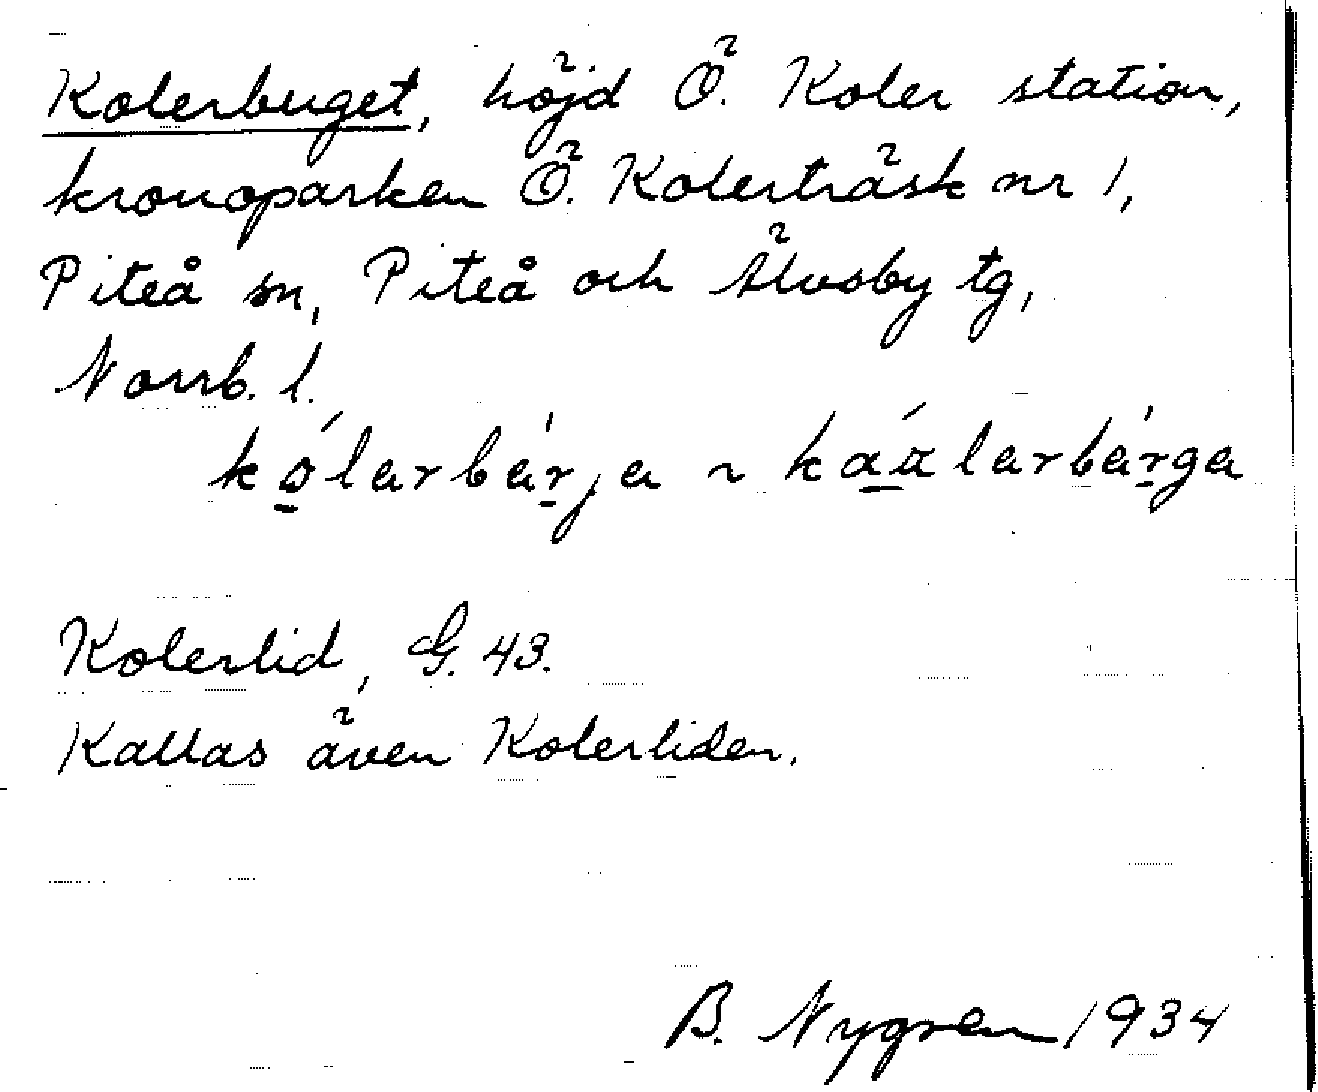 Kolerberget, höjd Ö. Koler station,
kronoparken Ö. Kolerträsk nr 1,
Piteå sn, Piteå och Älvsby tg,
Norrb. l.
kålarbärja ~ kaalarbärga
Kolerlid, G. 43.
Kallas även Kolerliden.
B. Nygren 1934